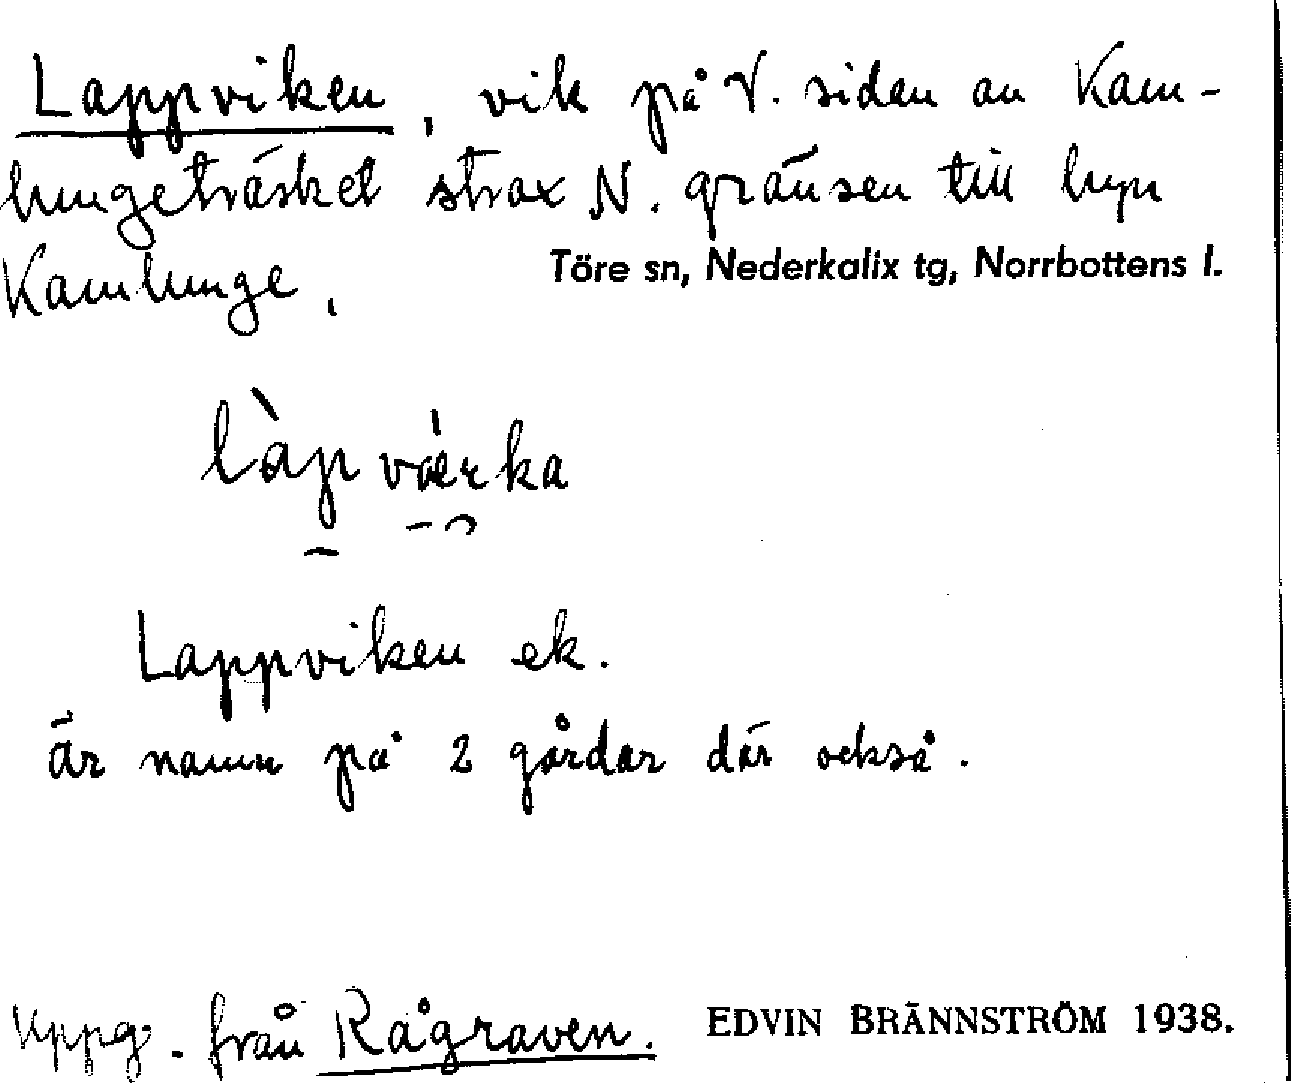 Lappviken, vik på V. sidan av Kam-
lungeträsket strax N. gränsen till byn
Kamlunge.
Töre sn, Nederkalix tg, Norrbottens l.
làp váerka
Lappviken ek.
är namn på 2 gårdar där också.
Uppg. från Rågraven.
EDVIN BRÄNNSTRÖM 1938.